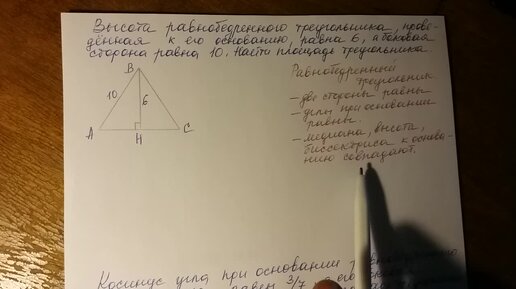 Высота равнобедренного треугольника, прове-
дённая к его основанию, равна 6, а боковая
сторона равна 10. Найти площадь треугольника.
Равнобедренный
треугольник
- две стороны равны
- углы при основании
равны.
- медиана, высота,
биссектриса к основа-
нию совпадают.
B
10
6
A
H
C
Косинус угла при основании
равен 3/7